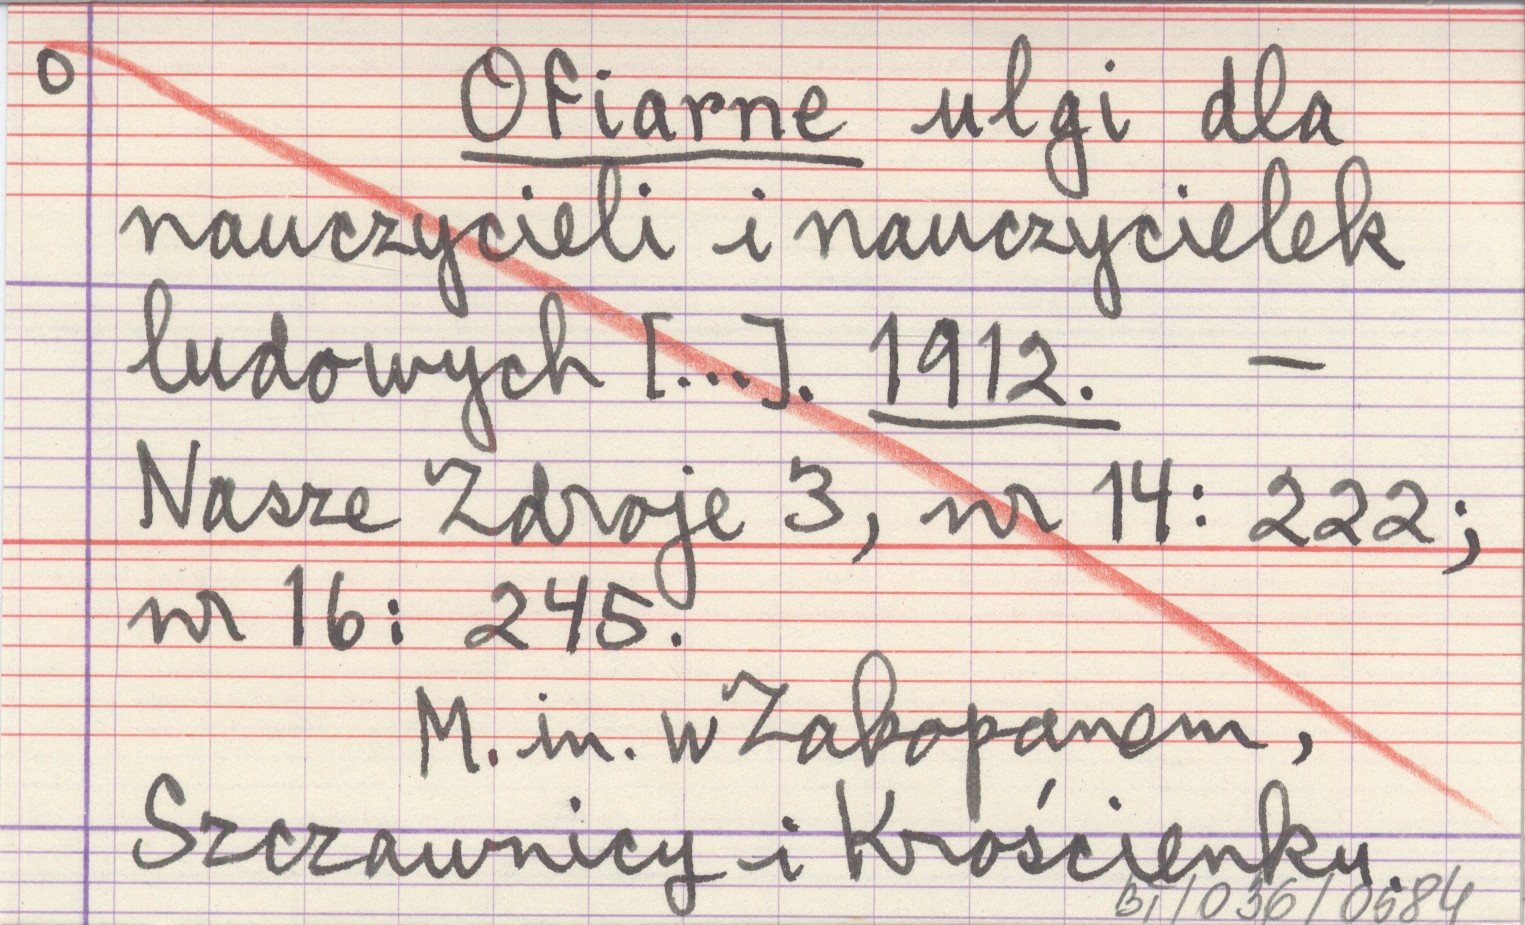 O
Ofiarne ulgi dla
nauczycieli i nauczycielek
ludowych [...]. 1912. —
Nasze Zdroje 3, nr 14: 222;
nr 16: 245.
M. in. w Zakopanem,
Szczawnicy i Krościenku.
BT/036/0584